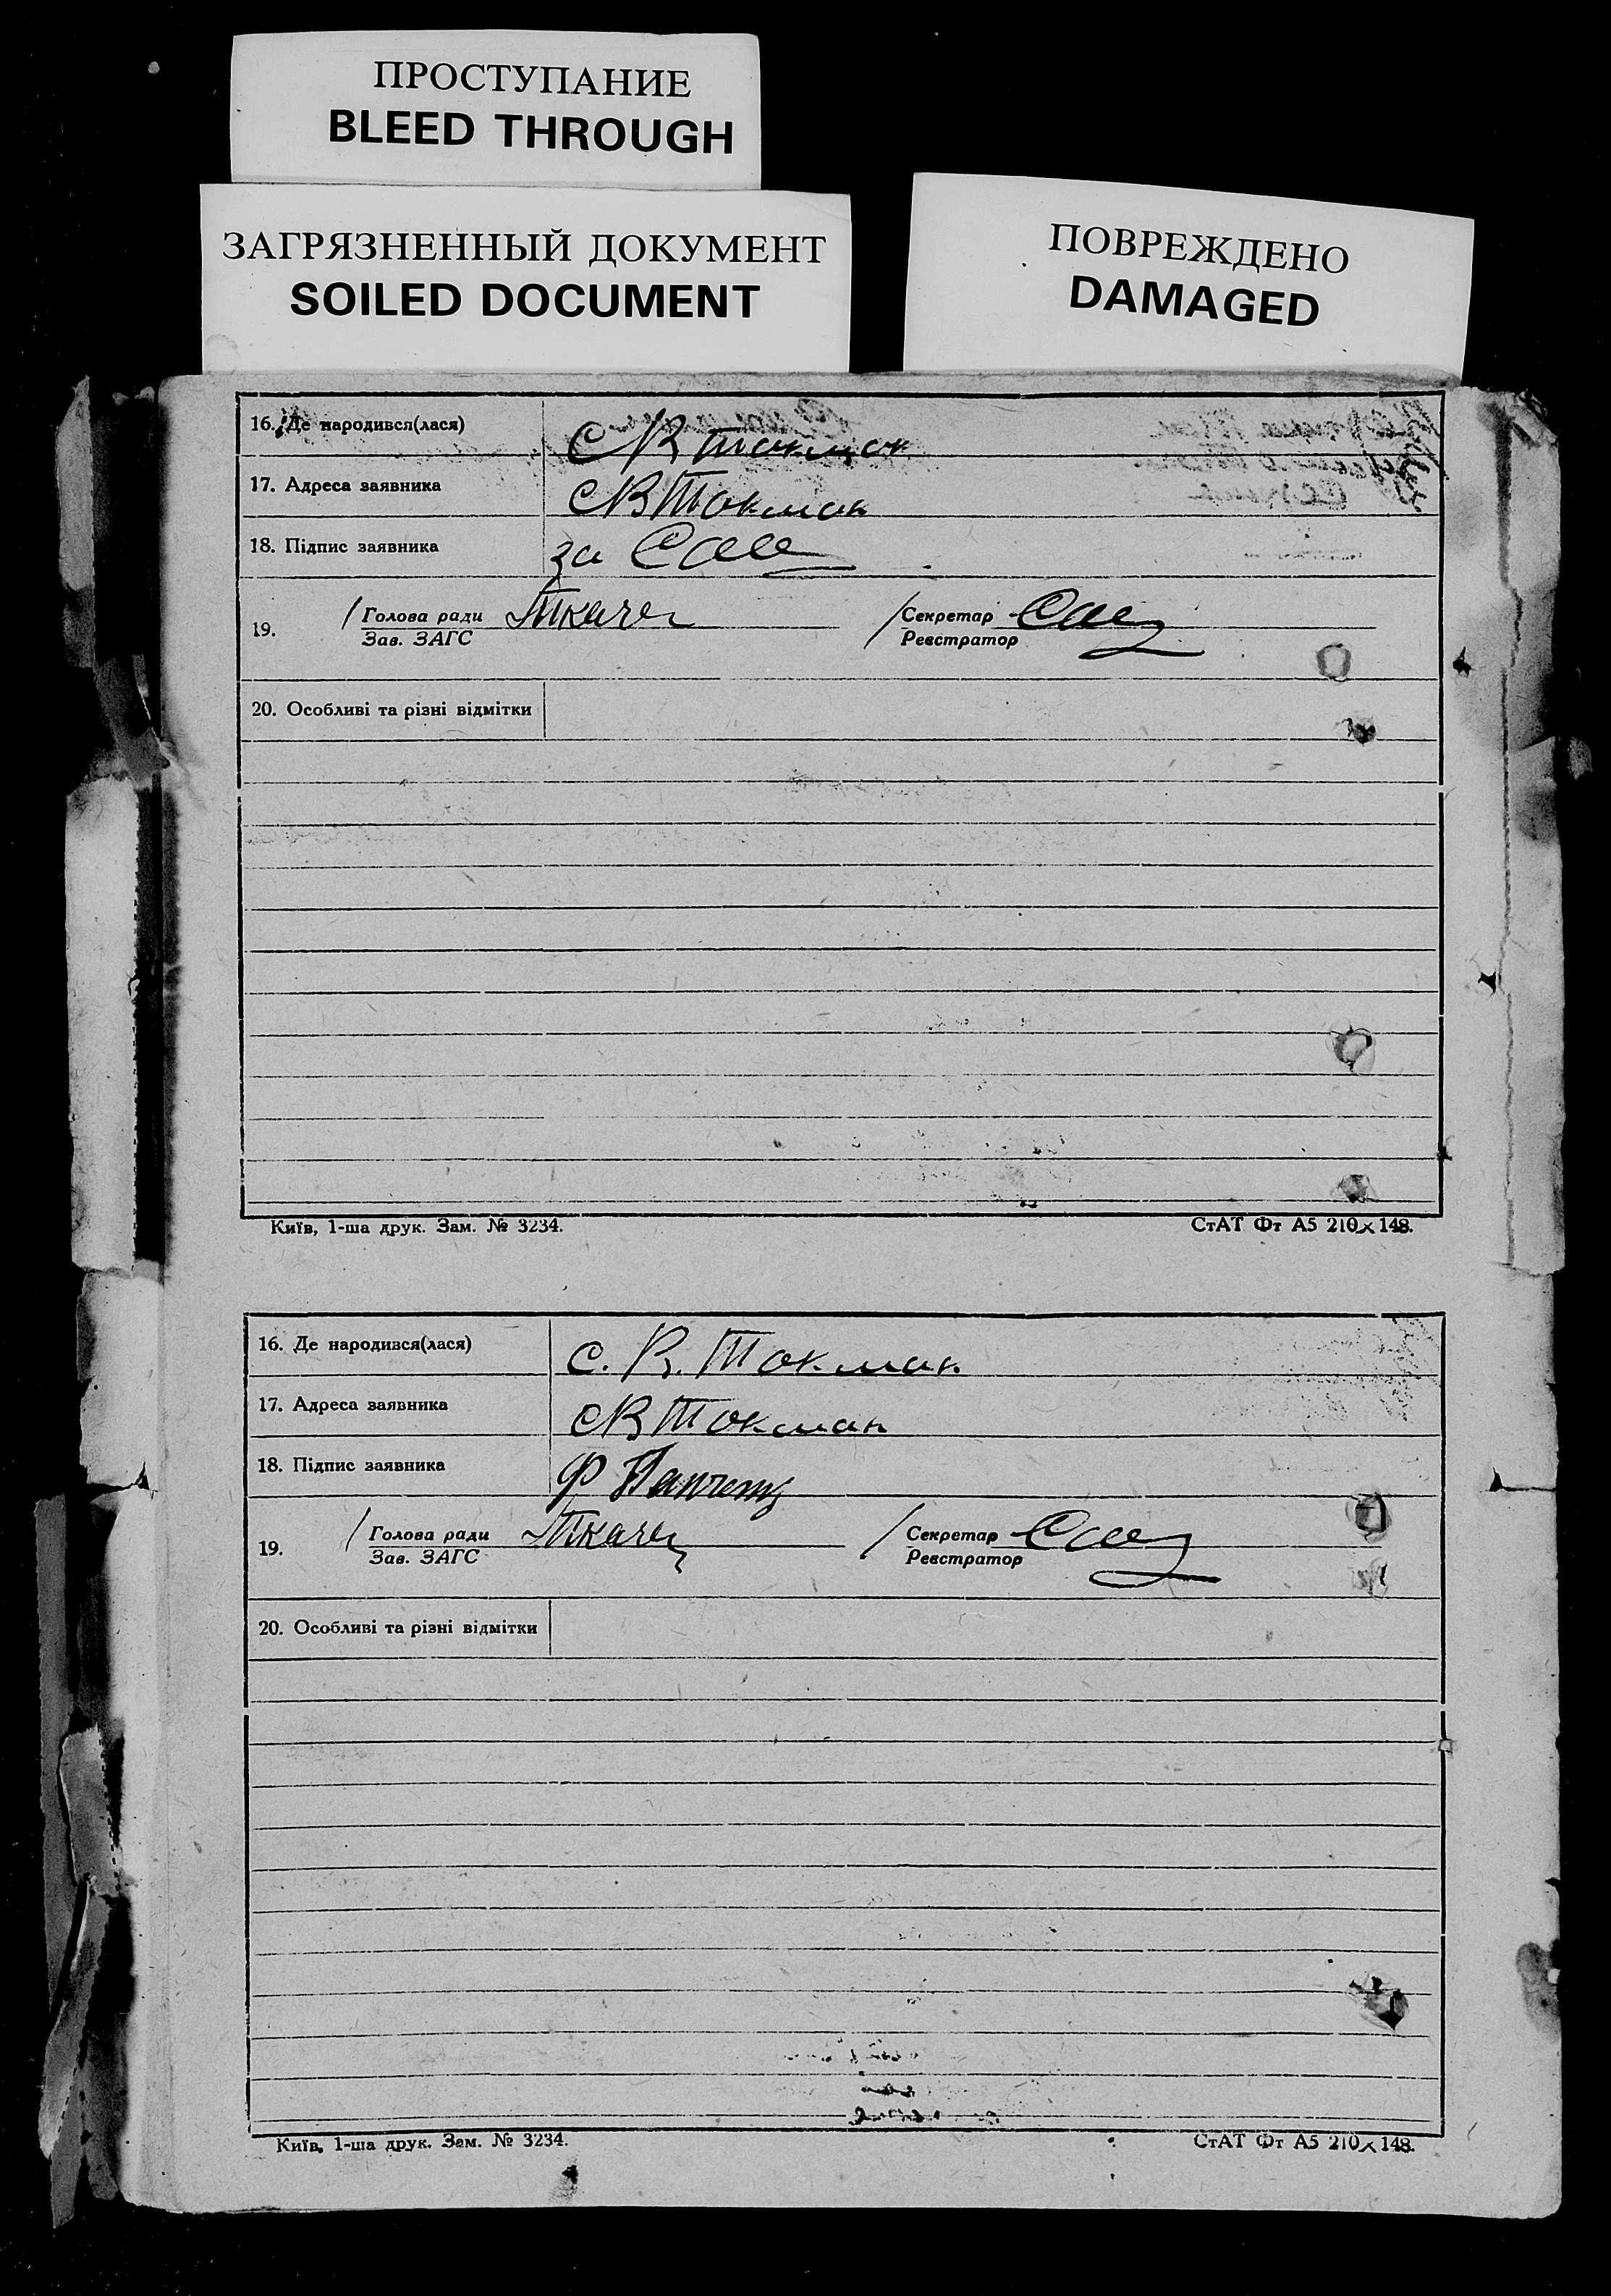 ПРОСТУПАНИЕ
BLEED THROUGH
ЗАГРЯЗНЕННЫЙ ДОКУМЕНТ
SOILED DOCUMENT
ПОВРЕЖДЕНО
DAMAGED
16. Де народився(лася) С В Токмак
17. Адреса заявника С В Токмак
18. Підпис заявника за
19. Голова ради Секретар
Зав. ЗАГС Реєстратор
20. Особливі та різні відмітки
Київ, 1-ша друк. Зам. № 3234. СтАТ Фт А5 210×148.
16. Де народився(лася) С. В. Токмак
17. Адреса заявника С В Токмак
18. Підпис заявника Ф
19. Голова ради Секретар
Зав. ЗАГС Реєстратор
20. Особливі та різні відмітки
Київ, 1-ша друк. Зам. № 3234. СтАТ Фт А5 210×148.